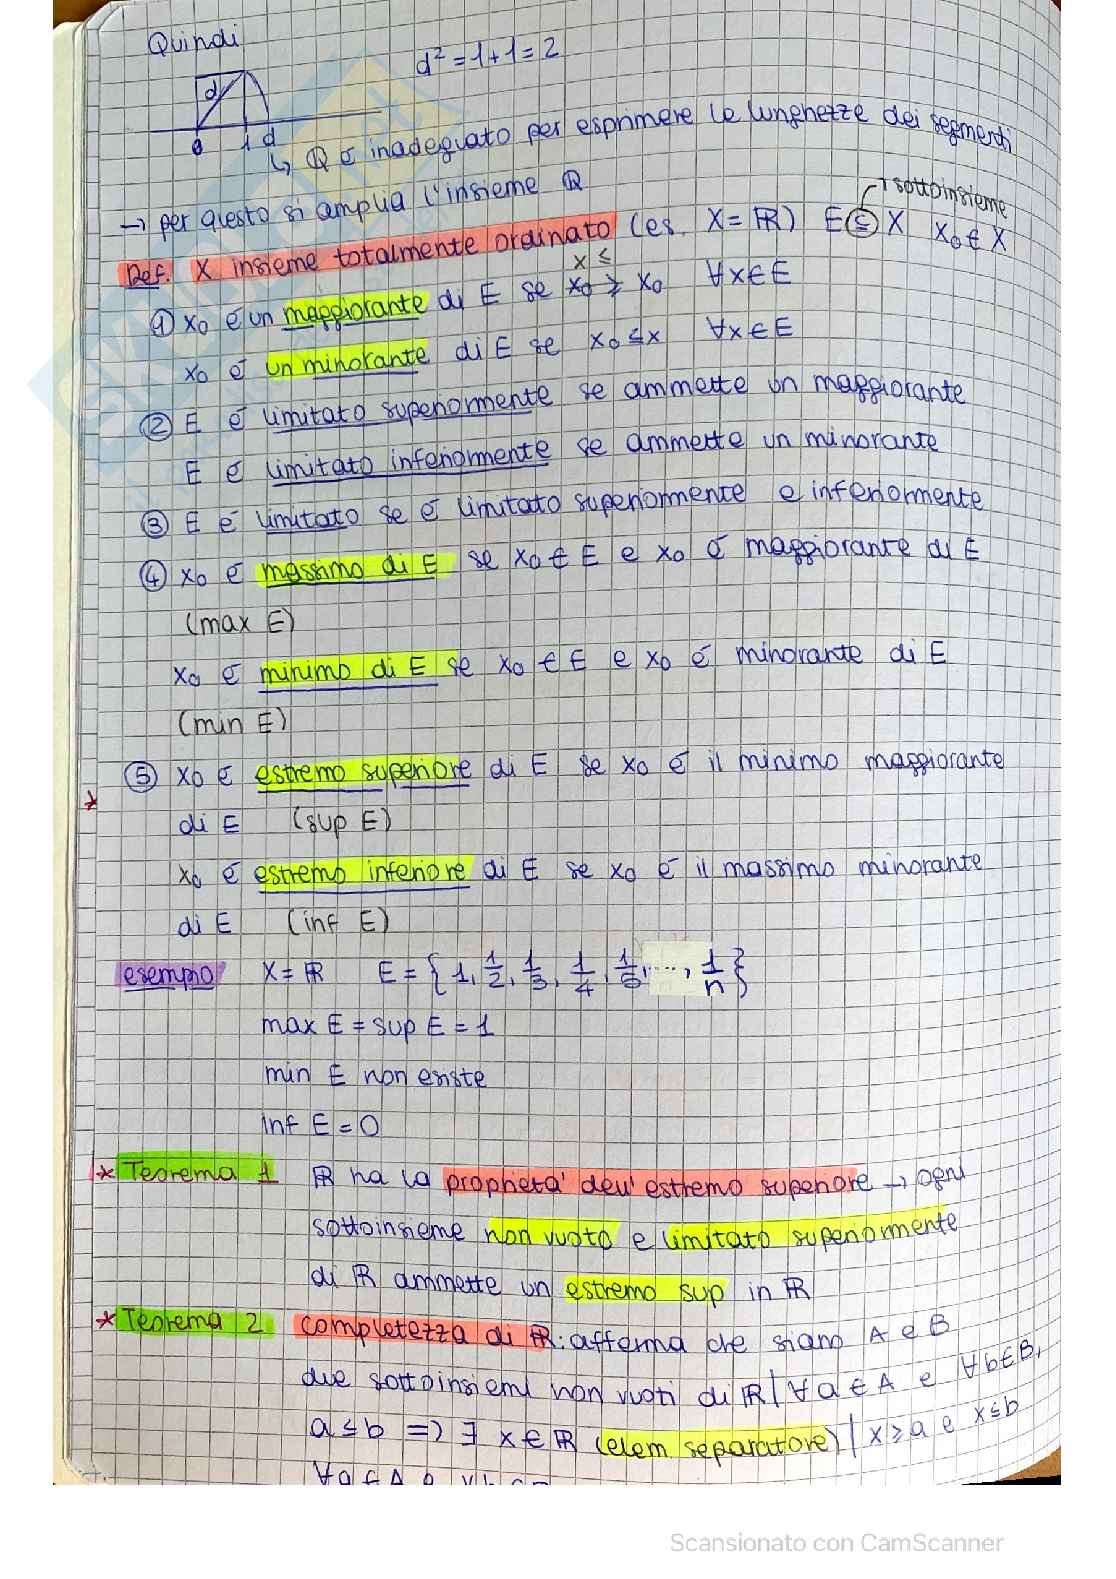 Quindi
d² = 1+1 = 2
d
0 1 d
↳ ℚ è inadeguato per esprimere le lunghezze dei segmenti
→ per questo si amplia l'insieme ℚ
sottoinsieme
Def. X insieme totalmente ordinato (es. X = ℝ) E ⊆ X x₀ ∈ X
x ≤
① x₀ è un maggiorante di E se x₀ ⩾ x₀ ∀x∈E
x₀ è un minorante di E se x₀ ≤ x ∀x∈E
② E è limitato superiormente se ammette un maggiorante
E è limitato inferiormente se ammette un minorante
③ E è limitato se è limitato superiormente e inferiormente
④ x₀ è massimo di E se x₀ ∈ E e x₀ è maggiorante di E
(max E)
x₀ è minimo di E se x₀ ∈ E e x₀ è minorante di E
(min E)
⑤ x₀ è estremo superiore di E se x₀ è il minimo maggiorante
di E (sup E)
x₀ è estremo inferiore di E se x₀ è il massimo minorante
di E (inf E)
esempio X = ℝ E = {1, 1/2, 1/3, 1/4, 1/5, ..., 1/n}
max E = sup E = 1
min E non esiste
inf E = 0
* Teorema 1 ℝ ha la proprietà dell'estremo superiore → ogni
sottoinsieme non vuoto e limitato superiormente
di ℝ ammette un estremo sup in ℝ
* Teorema 2 completezza di ℝ: afferma che siano A e B
due sottoinsiemi non vuoti di ℝ | ∀a∈A e ∀b∈B,
a ≤ b => ∃ x∈ℝ (elem separatore) | x ⩾ a e x ≤ b
∀a∈A e
Scansionato con CamScanner